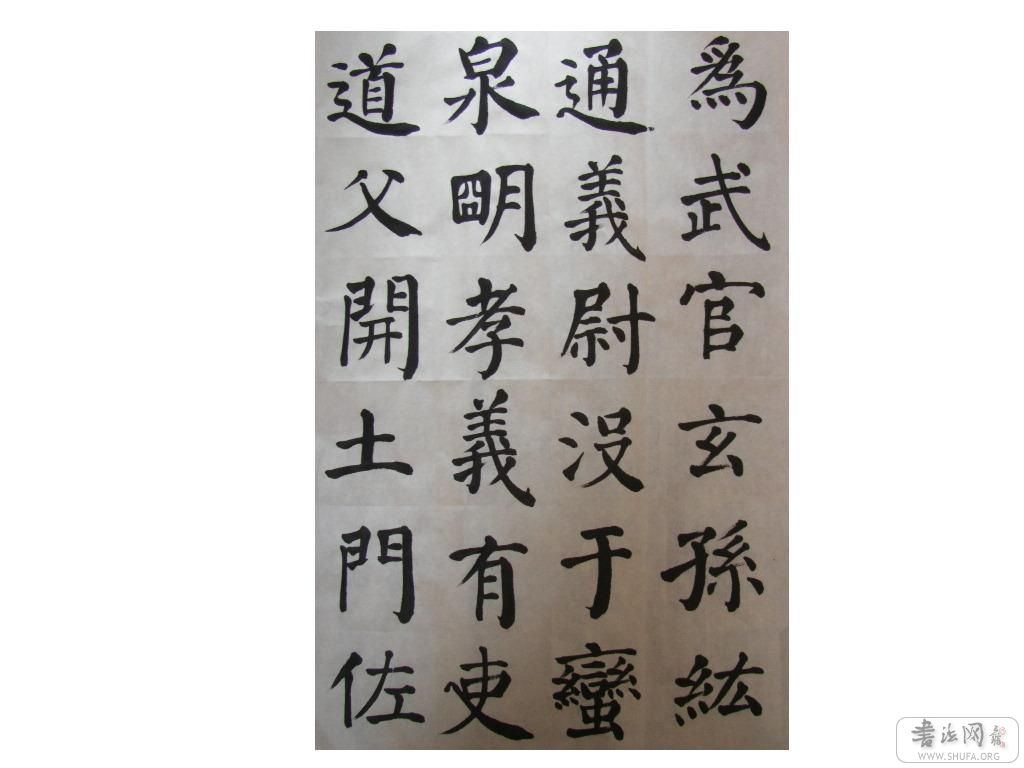 爲武官玄孫紘
通義尉沒于蠻
泉朙孝義有吏
道父開土門佐
书法网
WWW.SHUFA.ORG